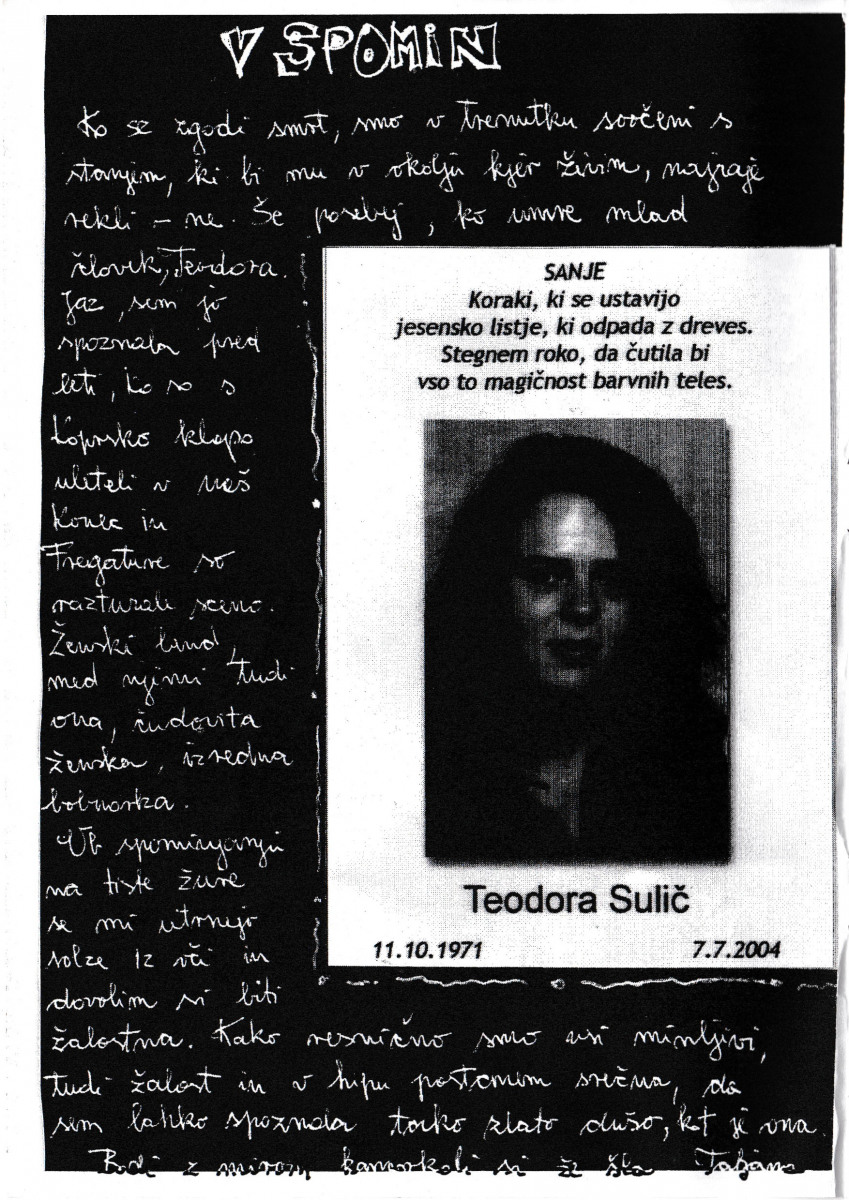 V SPOMIN
Ko se zgodi smrt, smo v trenutku soočeni s
stanjem, ki bi mu v okolju kjer živim, najraje
rekli - ne. Še posebej, ko umre mlad
človek, Teodora.
Jaz, sem jo
spoznala pred
leti, ko so s
koprsko klapo
uleteli v naš
konec in
Fregature so
razturale sceno.
Ženski bend,
med njimi tudi
ona, čudovita
ženska, izredna
bobnarka.
Ob spominjanju
na tiste žure
se mi utrnejo
solze iz oči in
dovolim si biti
žalostna. Kako resnično smo vsi minljivi,
tudi žalost in v hipu postanem srečna, da
sem lahko spoznala tako zlato dušo, kot je ona.
Bodi z mirom kamorkoli si že šla Tatjana
SANJE
Koraki, ki se ustavijo
jesensko listje, ki odpada z dreves.
Stegnem roko, da čutila bi
vso to magičnost barvnih teles.
Teodora Sulič
11.10.1971 7.7.2004